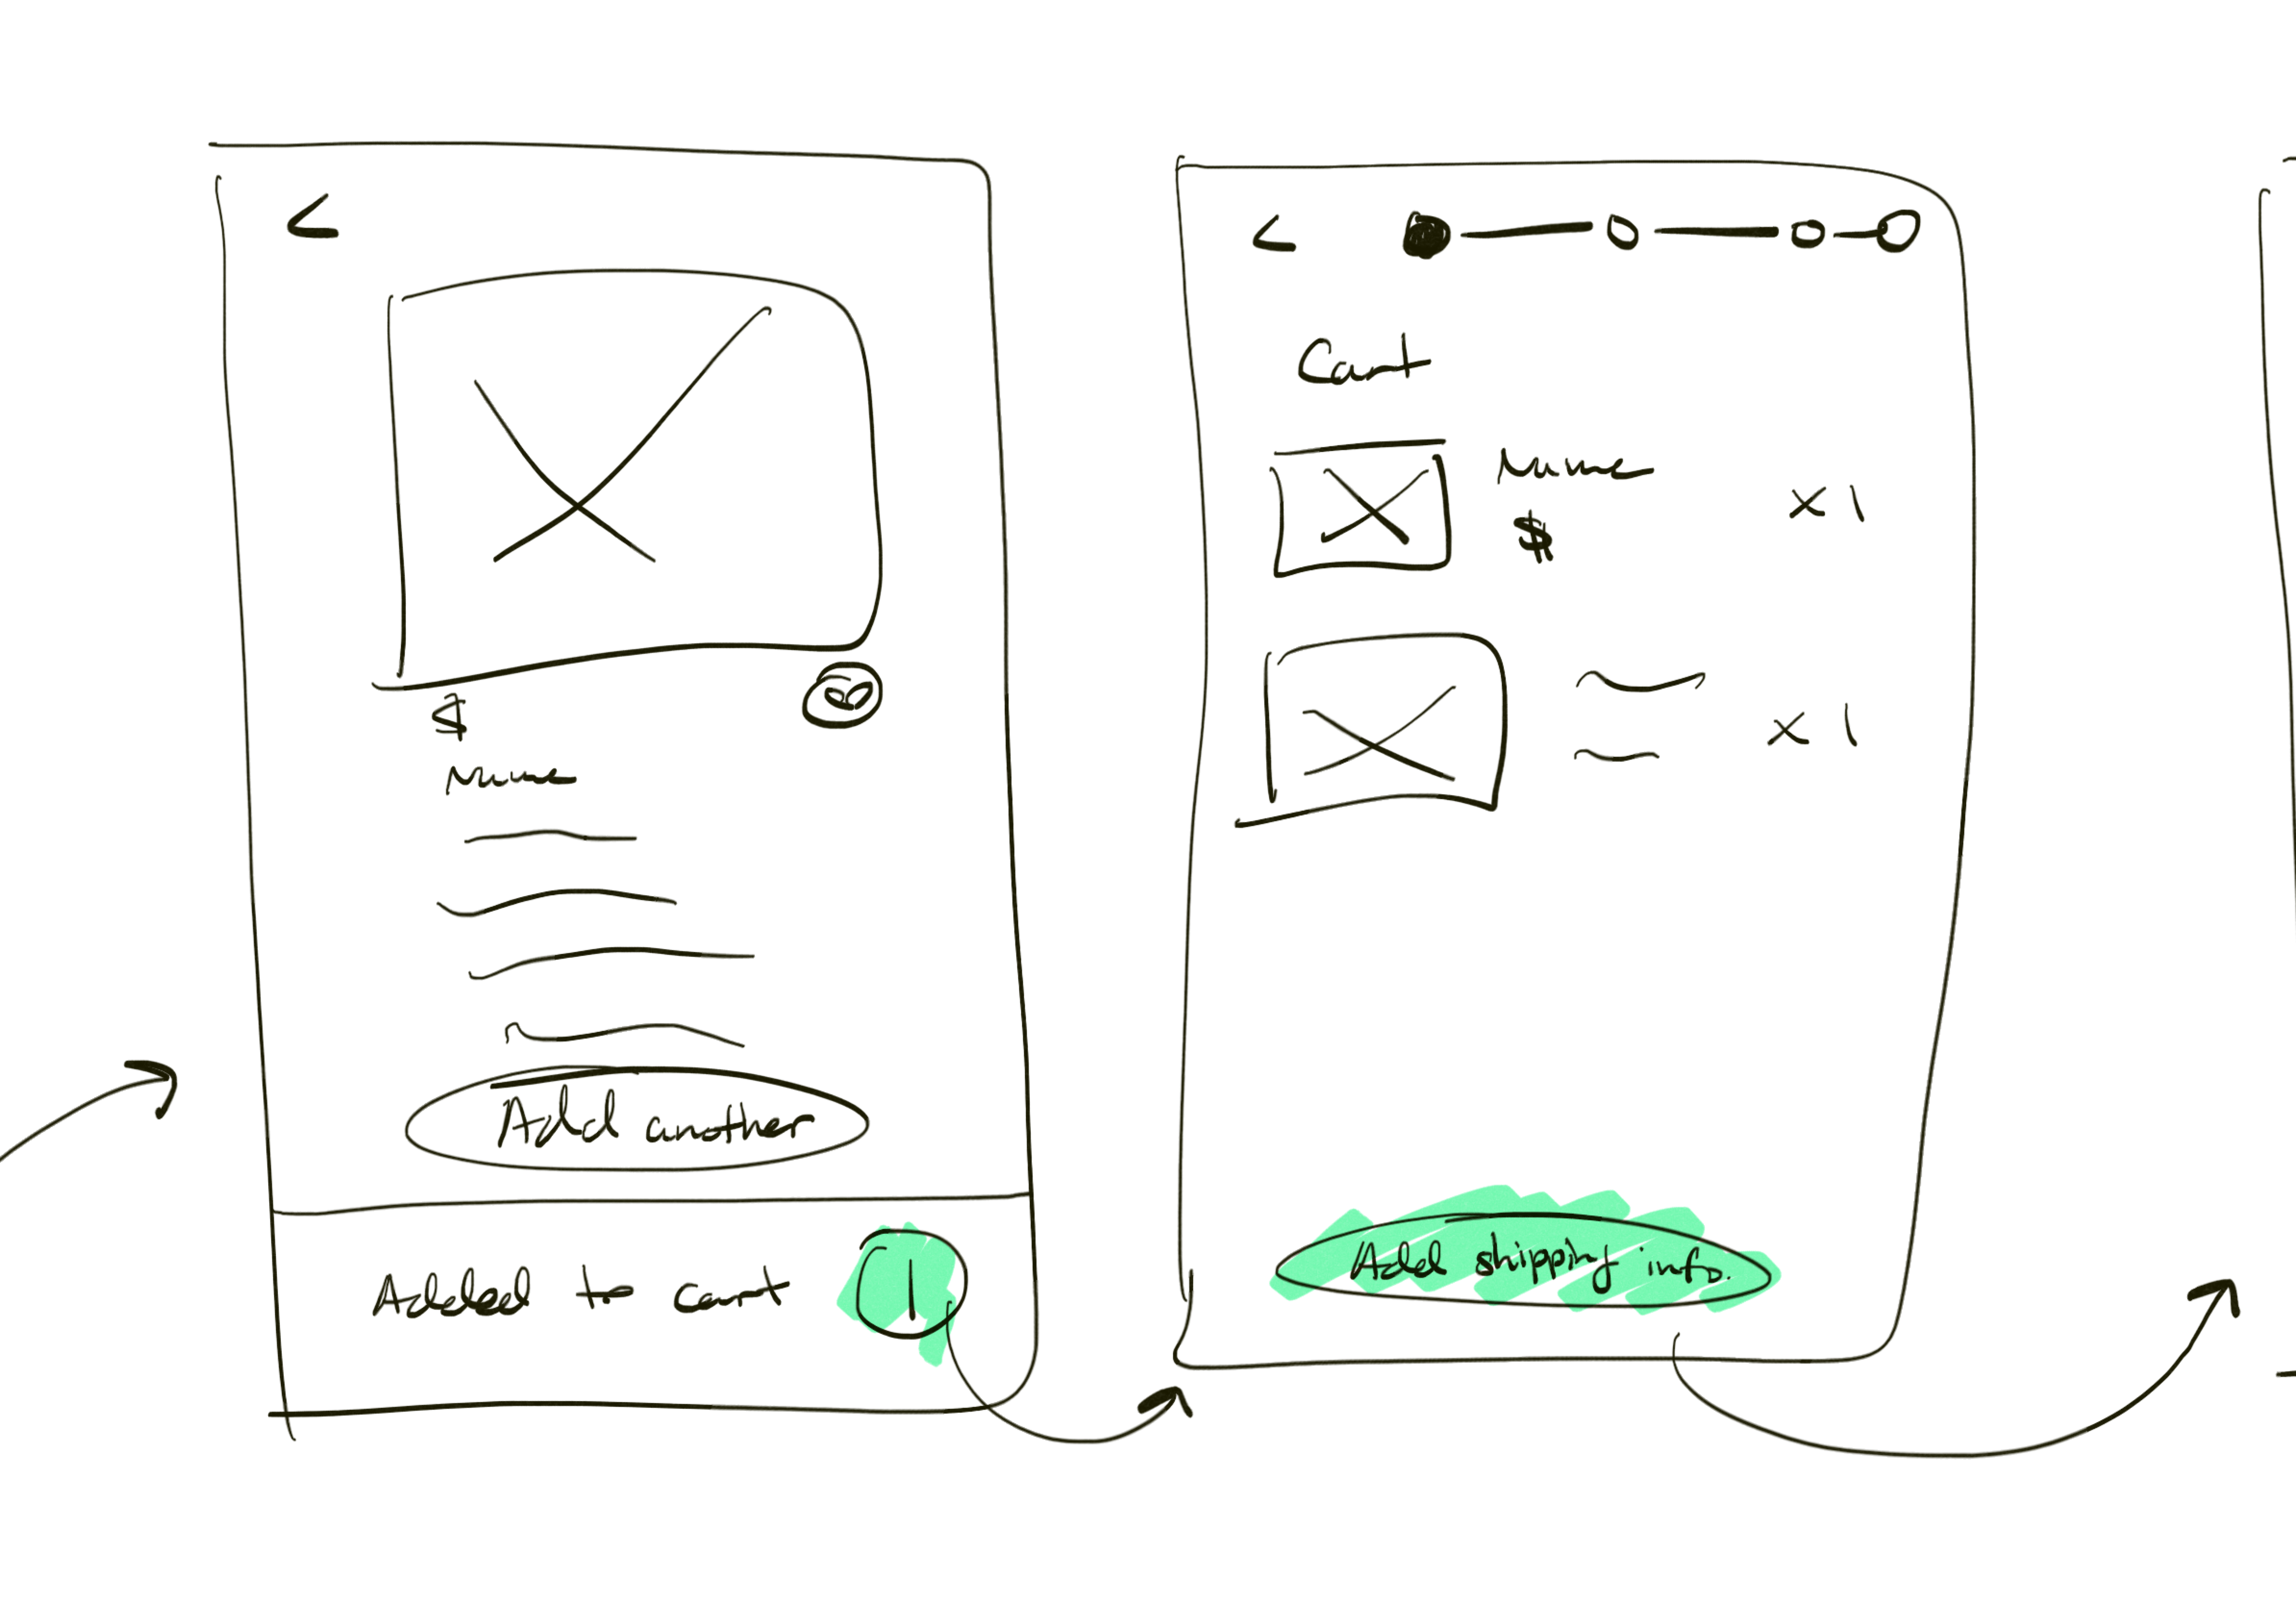 <
$
Name
Add another
Added to cart 1
<
Cart
Name
$
x 1
x 1
Add shipping info.